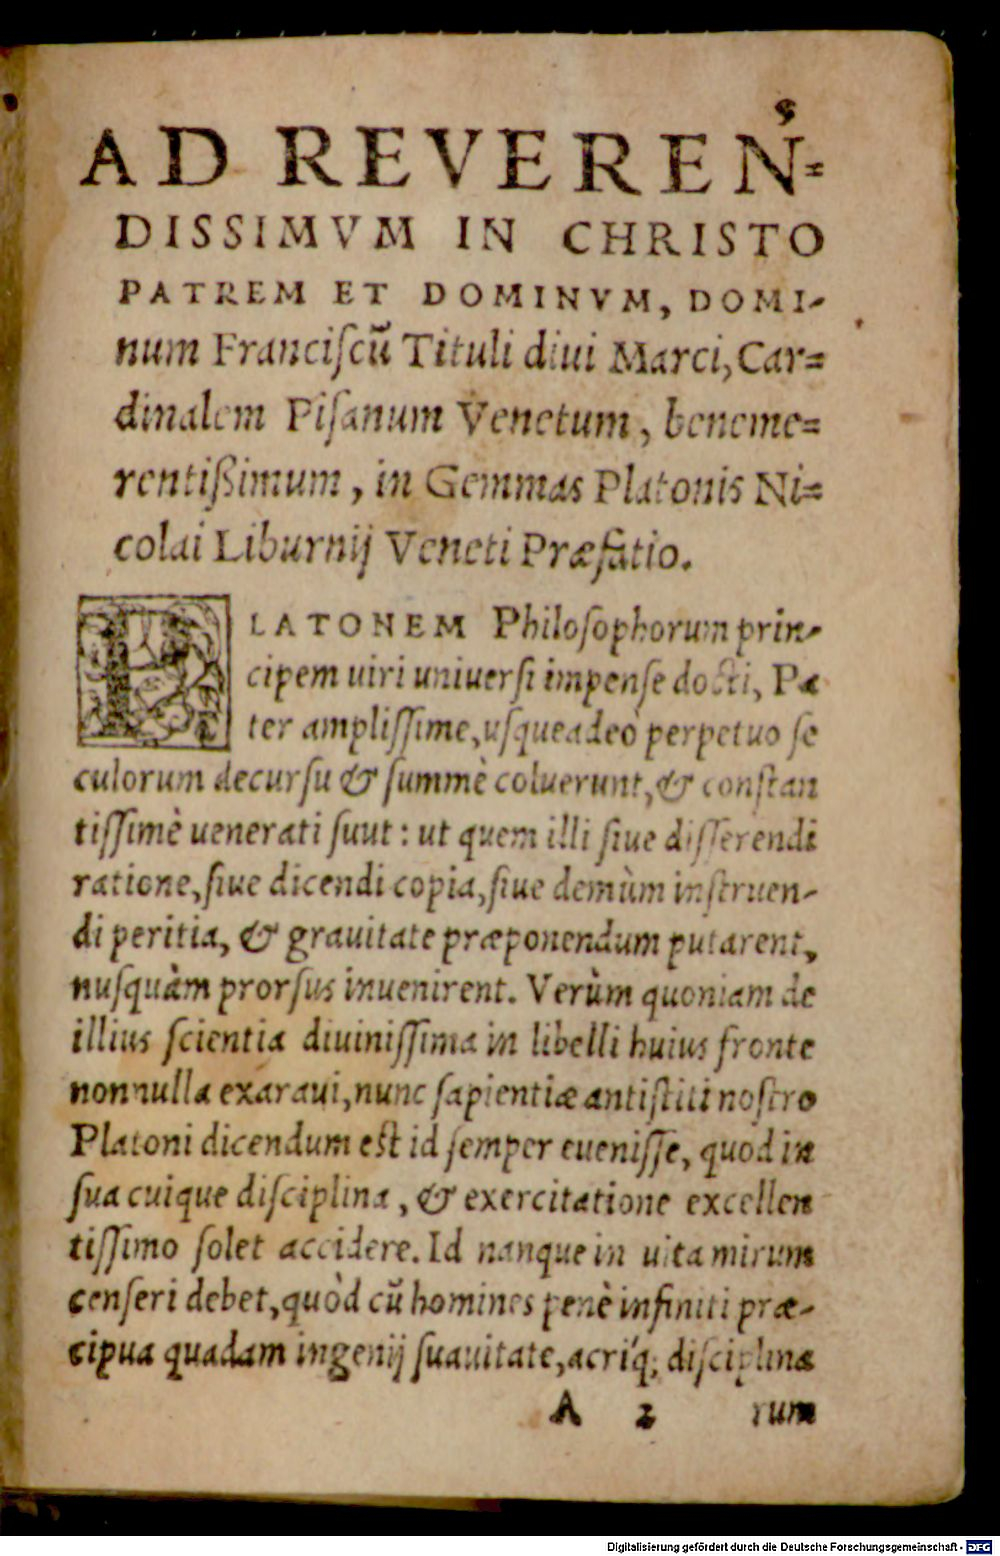 AD REVEREN⸗
DISSIMVM IN CHRISTO
PATREM ET DOMINVM, DOMI-
num Franciſcũ Tituli diui Marci, Car⸗
dinalem Piſanum Venetum, beneme⸗
rentißimum, in Gemmas Platonis Ni⸗
colai Liburnij Veneti Præfatio.
PLATONEM Philoſophorum prin-
cipem uiri uniuerſi impenſe docti, Pa
ter ampliſſime, uſqueadeò perpetuo ſe
culorum decurſu & ſummè coluerunt, & conſtan
tiſſimè uenerati ſuut: ut quem illi ſiue diſſerendi
ratione, ſiue dicendi copia, ſiue demùm inſtruen-
di peritia, & grauitate præponendum putarent,
nuſquàm prorſus inuenirent. Verùm quoniam de
illius ſcientia diuiniſſima in libelli huius fronte
nonnulla exaraui, nunc ſapientiæ antiſtiti noſtro
Platoni dicendum est id ſemper eueniſſe, quod in
ſua cuique diſciplina, & exercitatione excellen
tiſſimo ſolet accidere. Id nanque in uita mirum
cenſeri debet, quòd cũ homines penè infiniti præ-
cipua quadam ingenij ſuauitate, acríq; diſciplina
A 2 rum
Digitalisierung gefördert durch die Deutsche Forschungsgemeinschaft - DFG